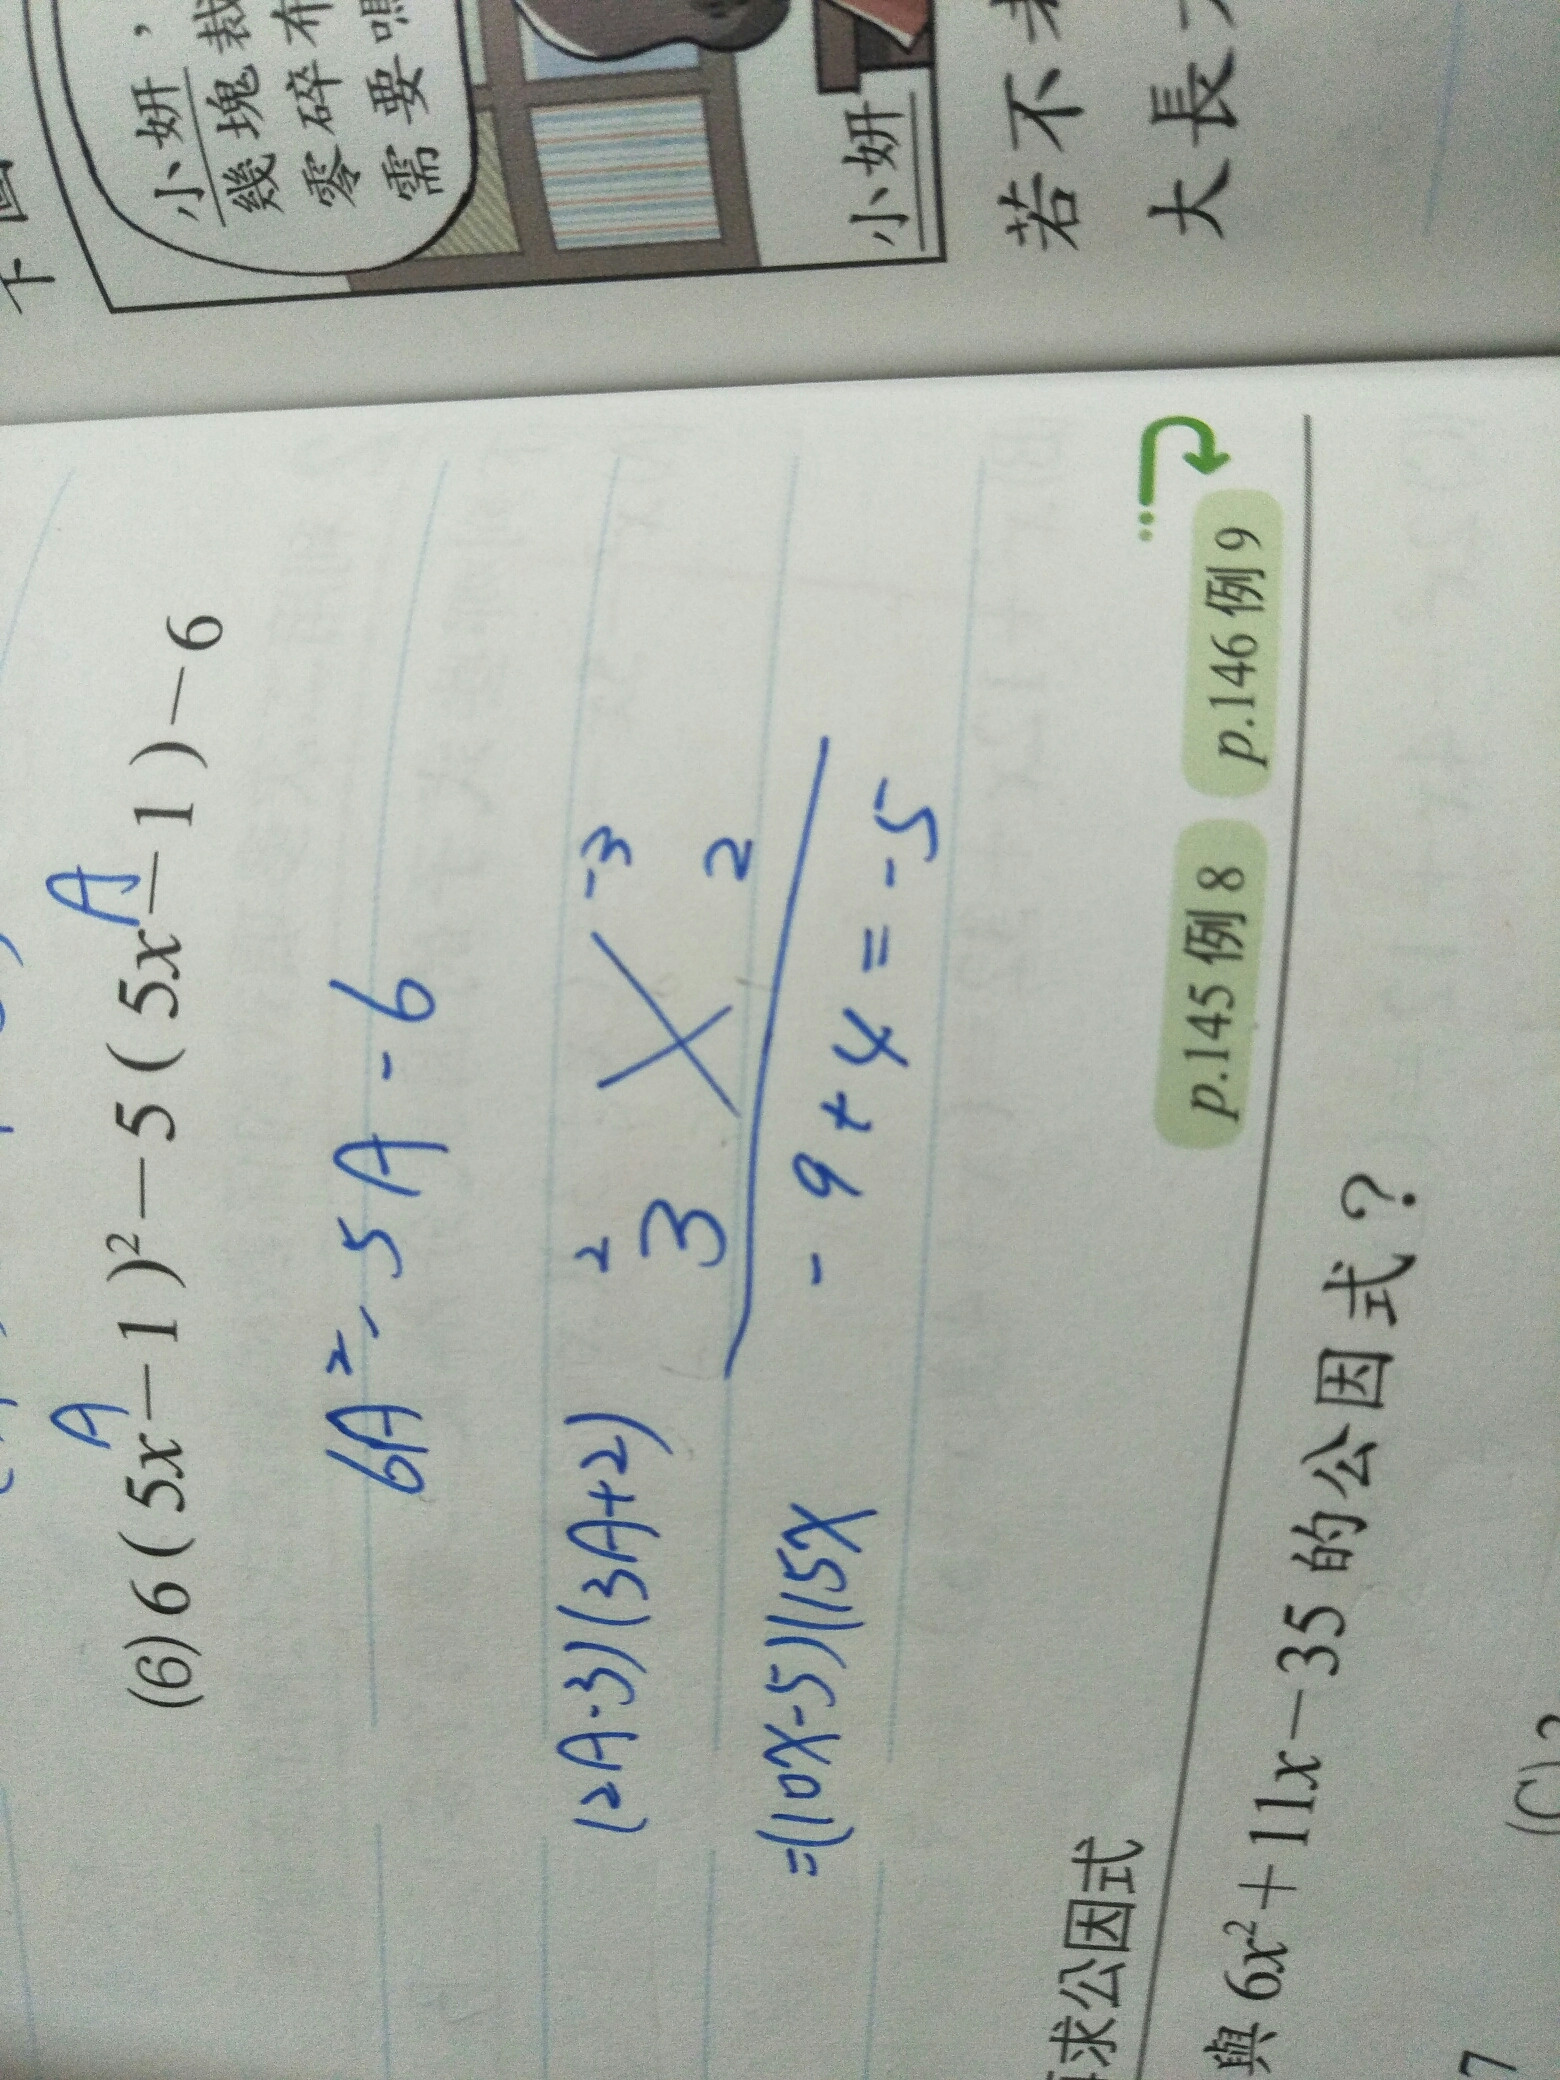 (6) 6(5x-1)²-5(5x-1)-6
A A
6A²-5A-6
(2A-3)(3A+2)
2 -3
3 2
-9+4=-5
=(10x-5)(15x
求公因式
p.145 例 8 p.146 例 9
與 6x²+11x-35 的公因式?
7
小妍,
幾塊裁
零碎布
需要嗎
小妍
若不
大長